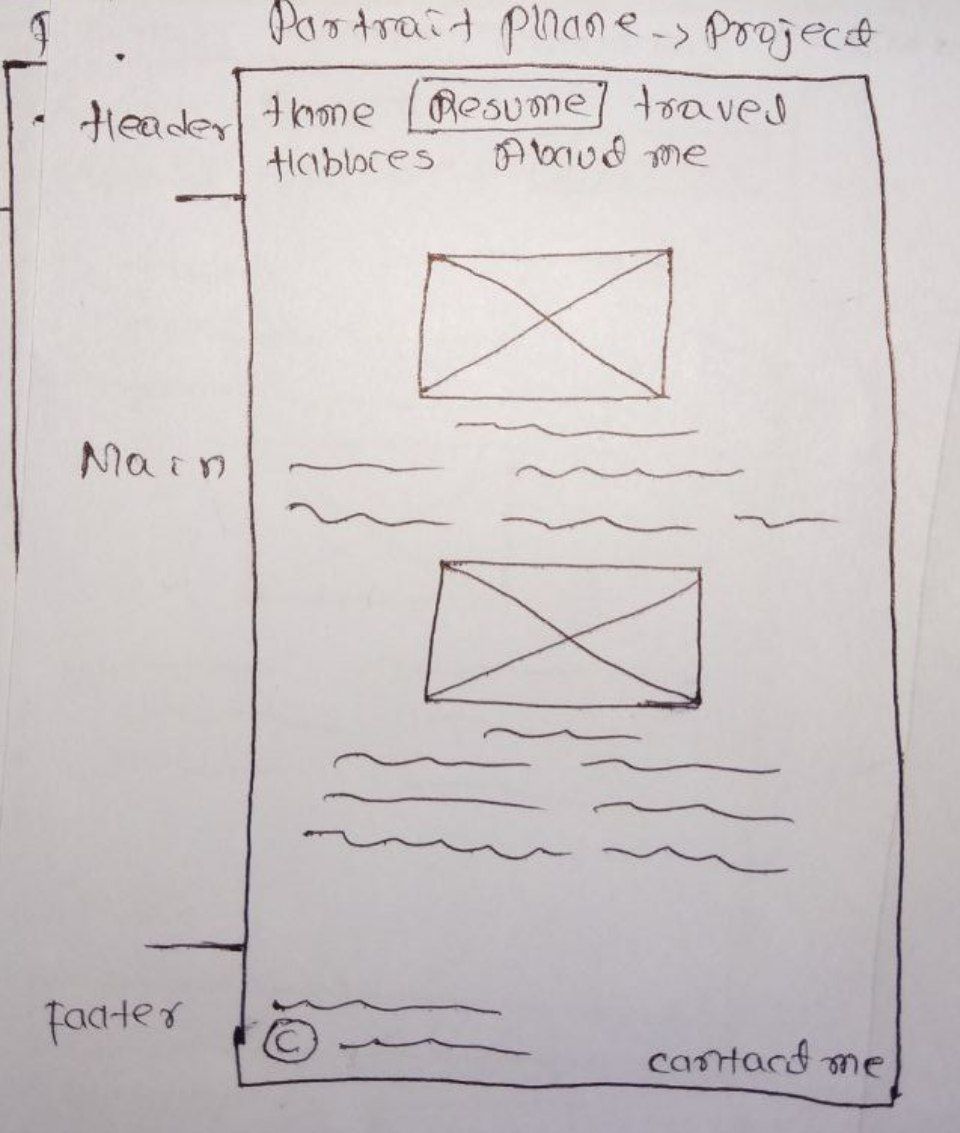 Portrait phone -> Project
Header
Home Resume travel
Habbies About me
Main
Footer
©
contact me